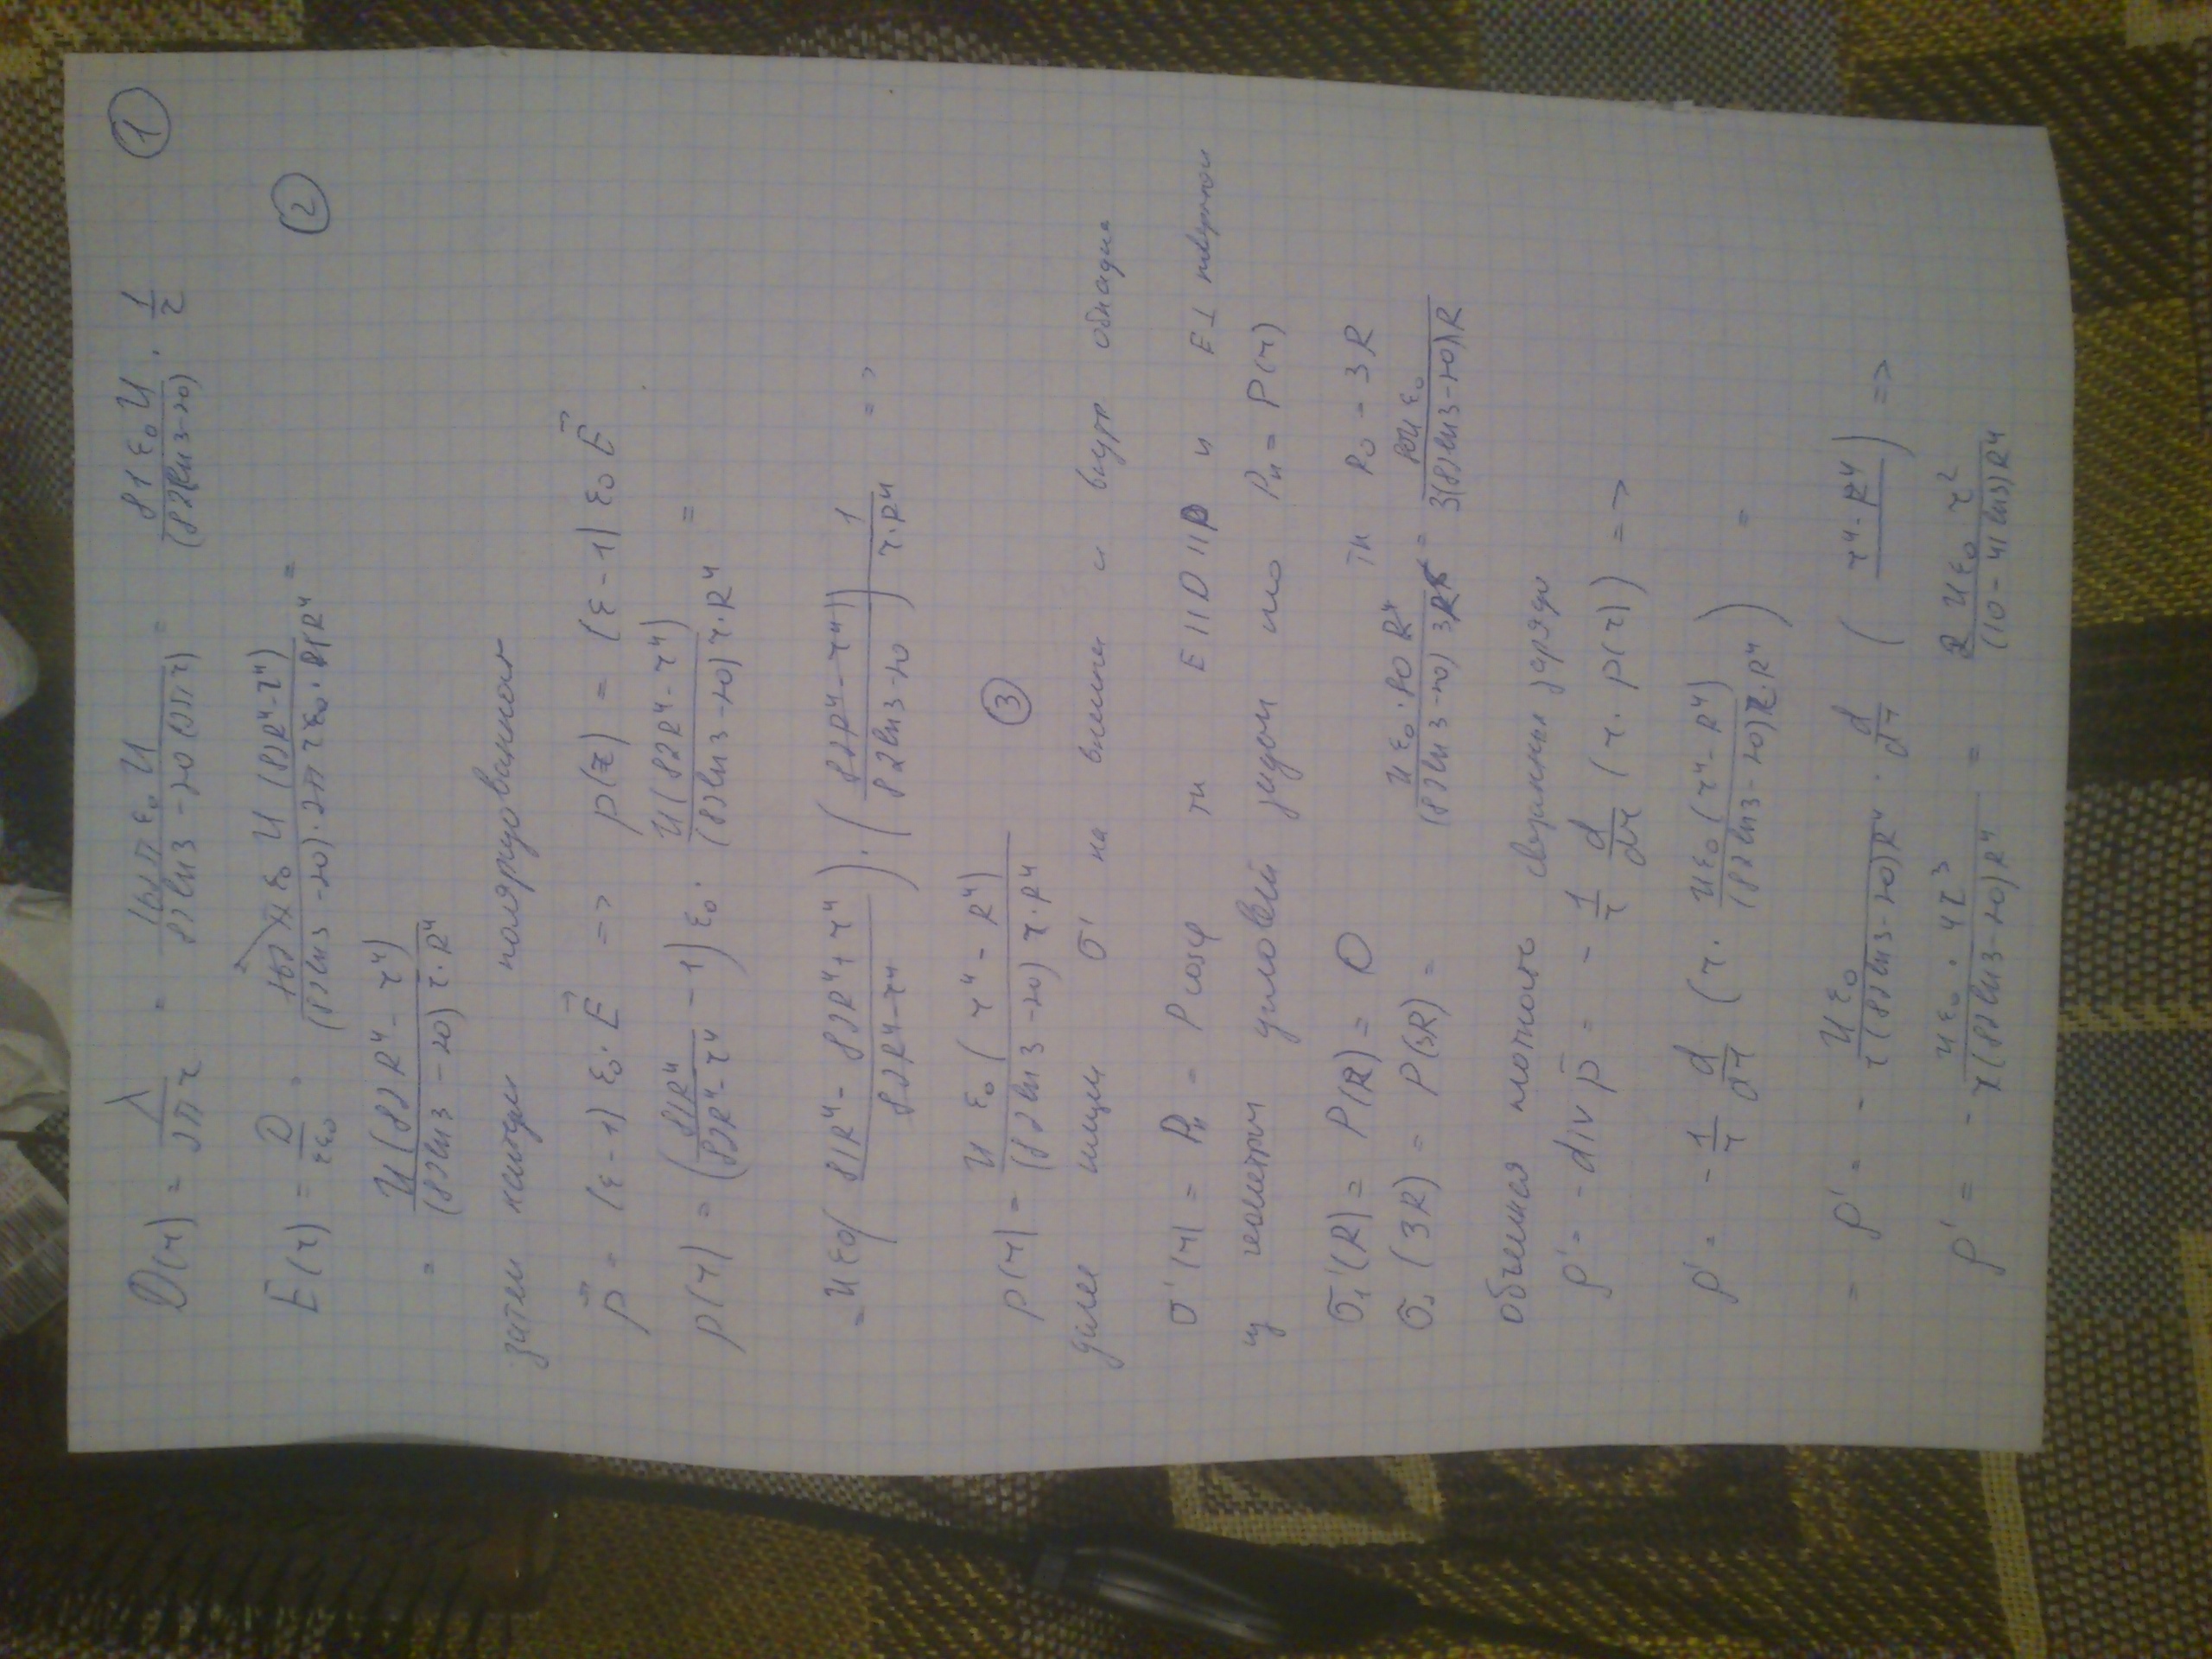 D(r) = λ / 2πr = 162π ε₀ U / 82ln3 − 20 (2πr) = 81 ε₀ U / (82ln3−20) · 1/r ①
E(r) = D / εε₀ = 162 π ε₀ U (82R⁴−r⁴) / (82ln3 −20)·2π r ε₀ · 81R⁴ = ②
= U (82R⁴ − r⁴) / (82ln3 − 20) r·R⁴
затем найдем
p⃗ = (ε−1) ε₀·E⃗ => p(r) = (ε−1) ε₀ E⃗
p(r) = (81R⁴ / 82R⁴−r⁴ − 1) ε₀ · U(82R⁴−r⁴) / (82ln3−20) r·R⁴ =
= U ε₀ (81R⁴ − 82R⁴ + r⁴ / 82R⁴−r⁴) · (82R⁴−r⁴ / 82ln3−20) 1 / r·R⁴ =>
p(r) = U ε₀ (r⁴ − R⁴) / (82ln3 −20) r·R⁴ ③
далее ищем σ' на внешн и внутр
σ'(r) = Pₙ = P cosφ тк E || D || p и E ⊥
из геометрии условий задач то Pₙ = P(r)
σ₁'(R) = P(R) = 0 тк R₀ = 3R
σ₂ (3R) = P(3R) = U ε₀ · 80 R⁴ / (82ln3−20) 3R⁵ = 80U ε₀ / 3(82ln3−20)R
объемная плотность связанных заряда
ρ' = −div p̄ = − 1/r d/dr (r · p(r)) =>
ρ' = −1/r d/dr (r · Uε₀(r⁴−R⁴) / (82ln3−20)r·R⁴) =
= ρ' = − Uε₀ / r(82ln3−20)R⁴ · d/dr (r⁴−R⁴) =>
ρ' = − Uε₀ · 4r³ / r(82ln3−20)R⁴ = 2 Uε₀ r² / (10 − 41ln3)R⁴